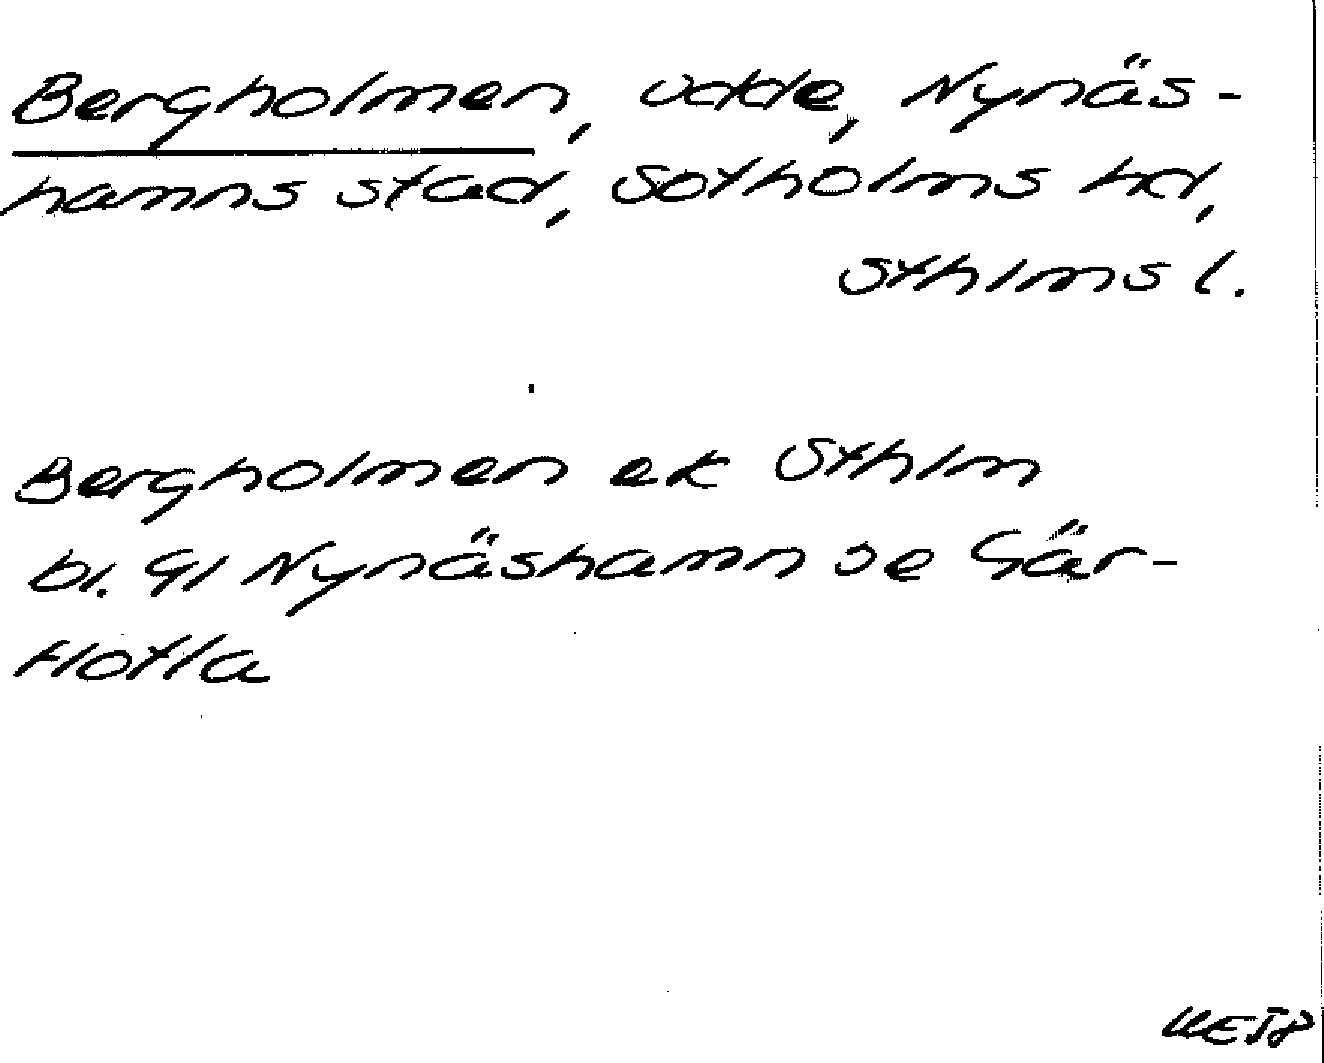 Bergholmen, udde, Nynäs-
hamns stad, Sotholms hd,
Sthlms l.
Bergholmen ek Sthlm
bl. 91 Nynäshamn se Gär-
flotta